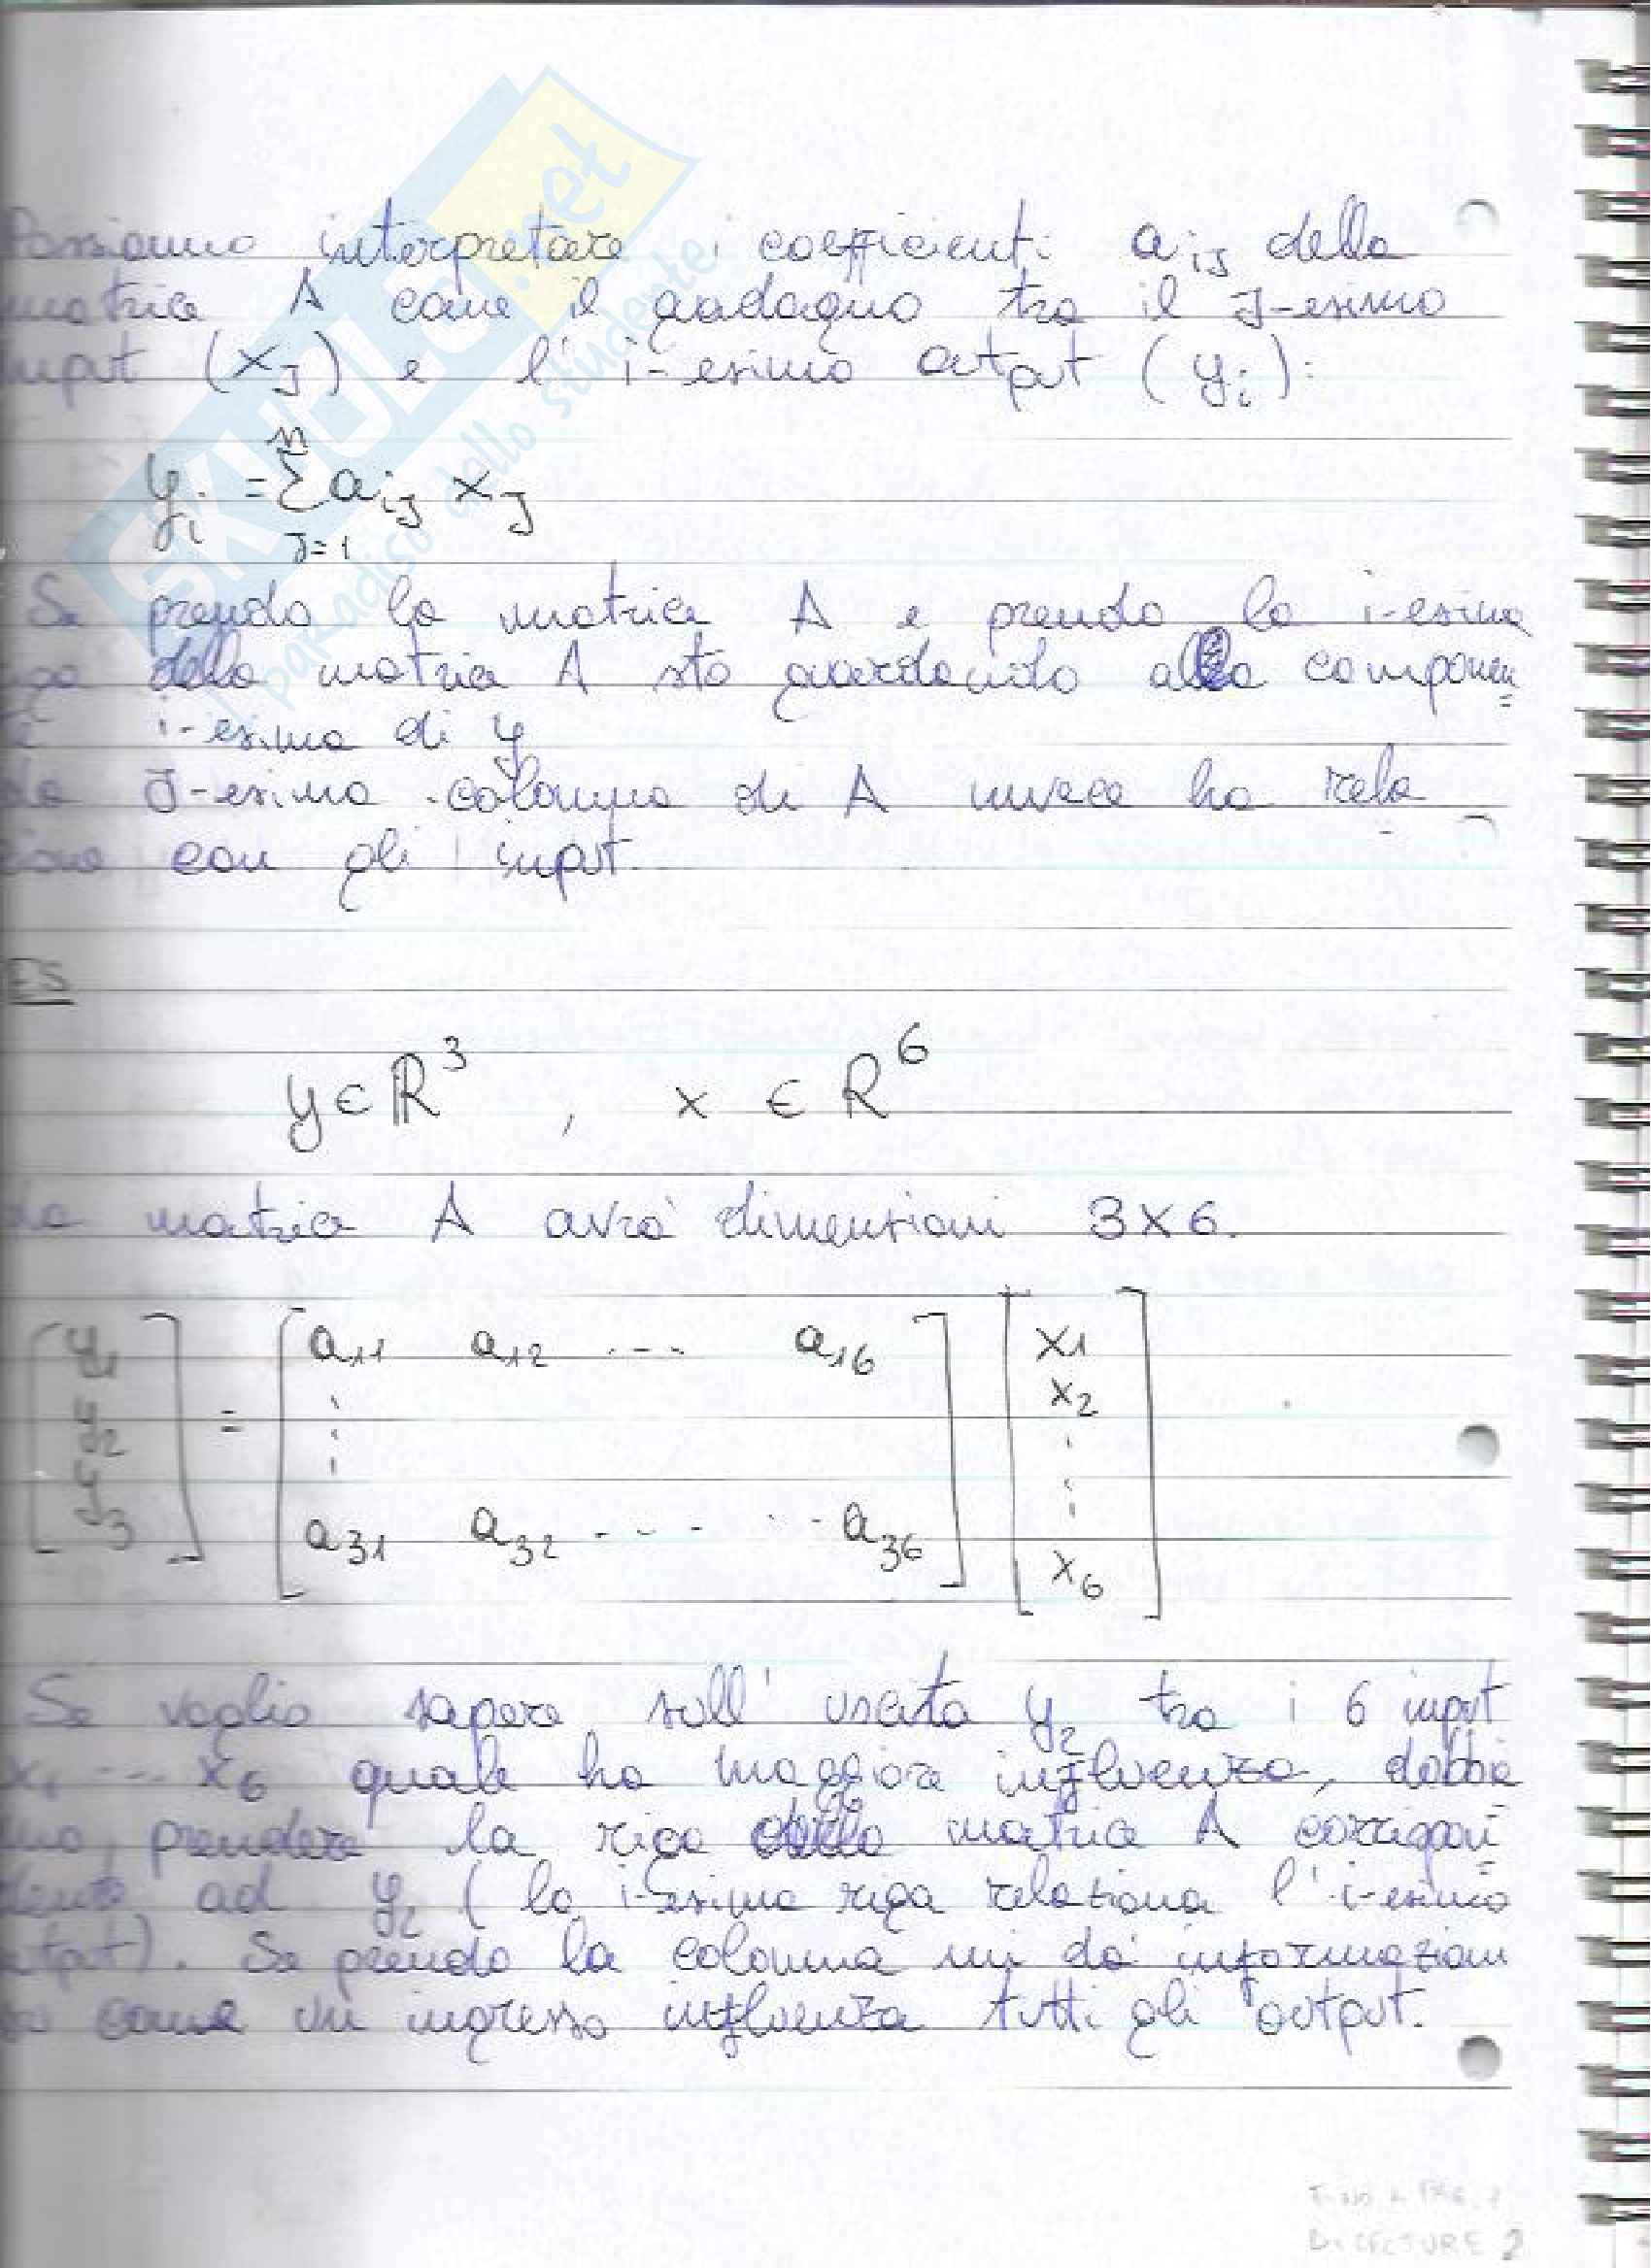 Possiamo interpretare i coefficienti a_ij della
matrice A come il guadagno tra il J-esimo
input (x_J) e l' i-esimo output (y_i):
y_i = Σ_{J=1}^{n} a_iJ x_J
Se prendo la matrice A e prendo la i-esima
riga della matrice A sto guardando alla componen
te i-esima di y
la J-esima colonna di A invece ha rela
zione con gli input.
ES
y ∈ ℝ^3 , x ∈ R^6
La matrice A avrà dimensioni 3x6.
[y1 y2 y3] = [a11 a12 ... a16 ⋮ a31 a32 ... a36] [x1 x2 ⋮ x6]
Se voglio sapere sull' uscita y2 tra i 6 input
x1 ... x6 quale ha maggiore influenza, dobbia
mo prendere la riga della matrice A corrispon
dente ad y2 (la i-esima riga relaziona l' i-esimo
output). Se prendo la colonna mi dà informazioni
su come un ingresso influenza tutti gli output.
FINO A PAG. 7
DI LECTURE 2
SKUOLA.net
il paradiso dello studente